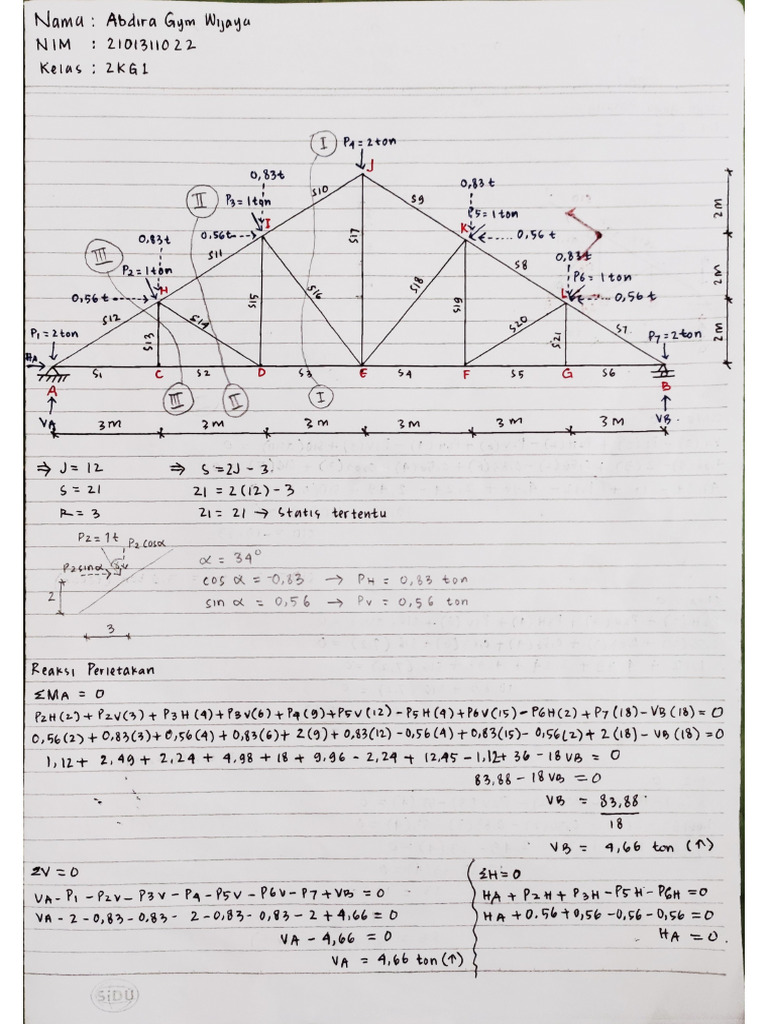 Nama : Abdira Gym Wijaya
NIM : 2101311022
Kelas : 2KG1
I
P4 = 2 ton
J
0,83t
0,83t
II
P3 = 1 ton
S10
S9
P5 = 1 ton
I
K
2 m
0,83t
0,56t
S17
0,56 t
III
S11
S8
0,83t
P2 = 1 ton
P6 = 1 ton
2 m
H
S15
S16
S18
S19
0,56t
L
0,56 t
S12
S13
S14
S20
S21
S7
P1 = 2 ton
P7 = 2 ton
2 m
HA
S1
C
S2
D
S3
E
S4
F
S5
G
S6
A
B
III
II
I
VA
VB
3 m
3 m
3 m
3 m
3 m
3 m
⇒ J = 12
⇒ S = 2J - 3
S = 21
21 = 2(12) - 3
R = 3
21 = 21 → Statis tertentu
P2 = 1t
P2 cosα
P2 sinα
2
3
α = 34°
cos α = 0,83 → PH = 0,83 ton
sin α = 0,56 → PV = 0,56 ton
Reaksi Perletakan
ΣMA = 0
P2H(2) + P2V(3) + P3H(4) + P3V(6) + P4(9) + P5V(12) - P5H(4) + P6V(15) - P6H(2) + P7(18) - VB(18) = 0
0,56(2) + 0,83(3) + 0,56(4) + 0,83(6) + 2(9) + 0,83(12) - 0,56(4) + 0,83(15) - 0,56(2) + 2(18) - VB(18) = 0
1,12 + 2,49 + 2,24 + 4,98 + 18 + 9,96 - 2,24 + 12,45 - 1,12 + 36 - 18 VB = 0
83,88 - 18 VB = 0
VB = 83,88
18
VB = 4,66 ton (↑)
ΣV = 0
VA - P1 - P2V - P3V - P4 - P5V - P6V - P7 + VB = 0
VA - 2 - 0,83 - 0,83 - 2 - 0,83 - 0,83 - 2 + 4,66 = 0
VA - 4,66 = 0
VA = 4,66 ton (↑)
ΣH = 0
HA + P2H + P3H - P5H - P6H = 0
HA + 0.56 + 0,56 - 0,56 - 0,56 = 0
HA = 0
SiDU